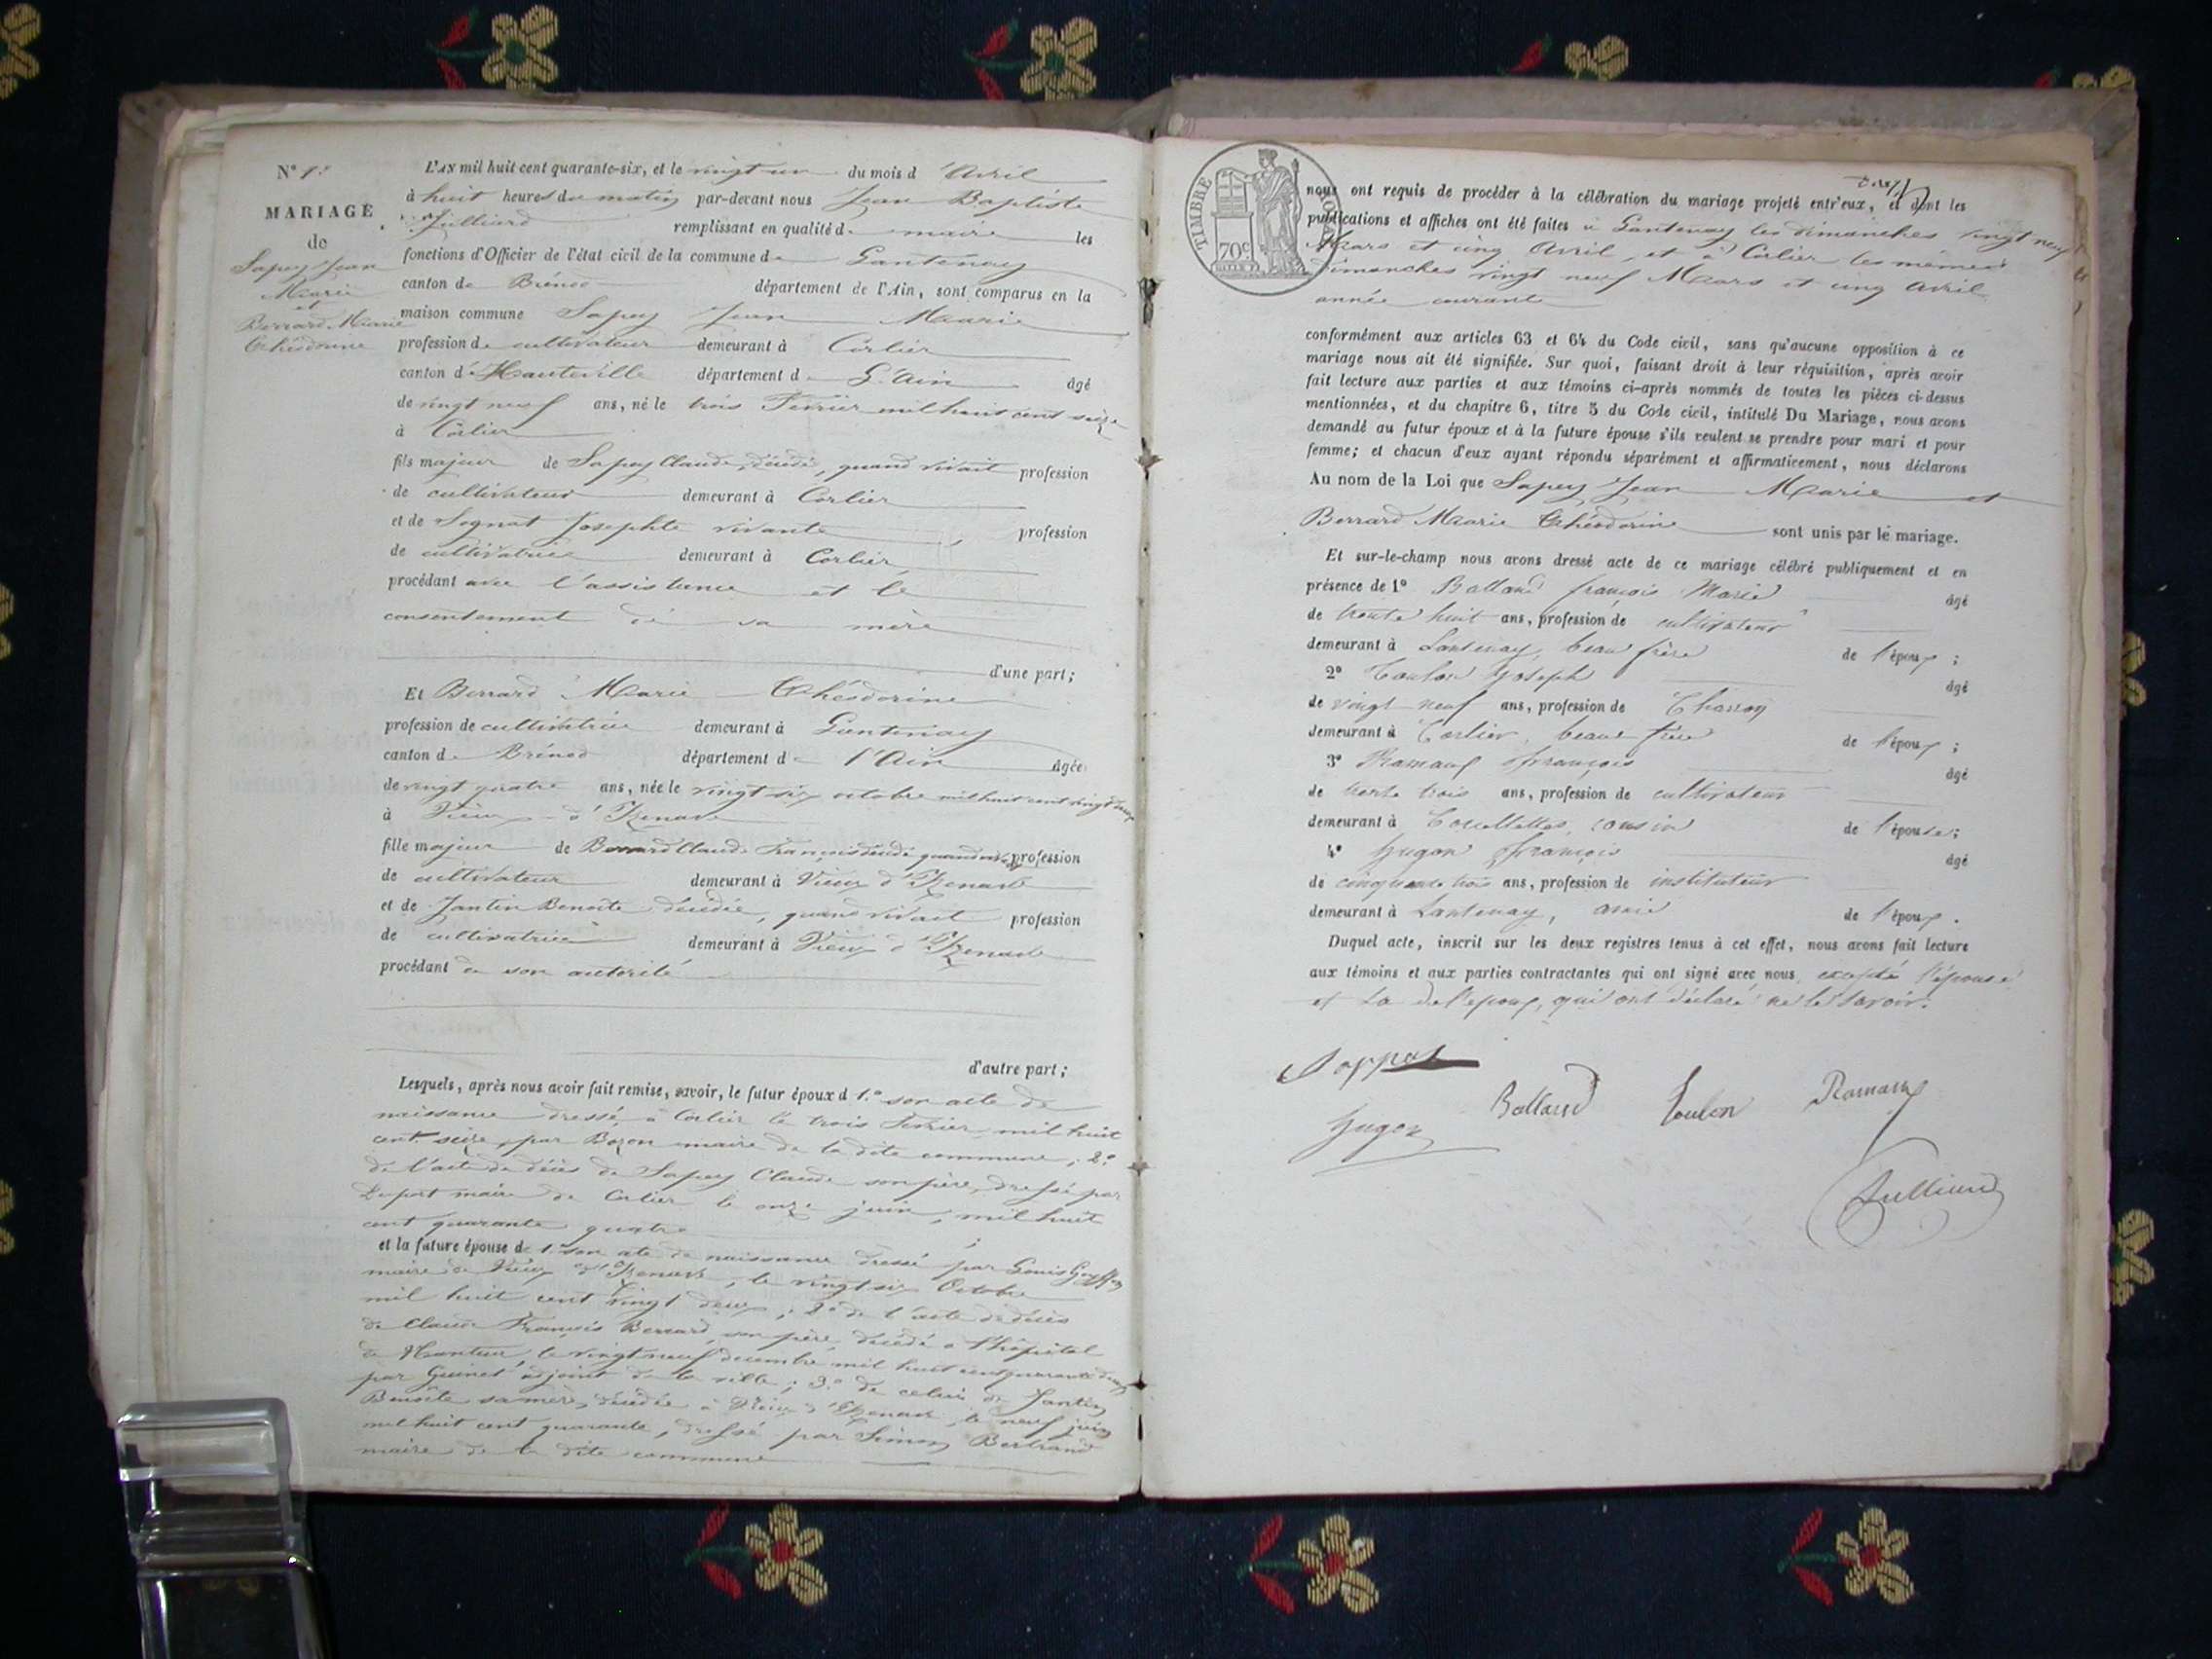 N° 1er
MARIAGE
de
Sapey Jean
Marie
et
Berrard Marie
Théodorine
L'AN mil huit cent quarante-six, et le vingt un du mois d'Avril
à huit heures du matin par-devant nous Jean Baptiste
Julliard remplissant en qualité de maire les
fonctions d'Officier de l'état civil de la commune de Lantenay
canton de Brénod département de l'Ain, sont comparus en la
maison commune Sapey Jean Marie
profession de cultivateur demeurant à Corlier
canton d'Hauteville département de L'Ain âgé
de vingt neuf ans, né le trois Février mil huit cent seize
à Corlier
fils majeur de Sapey Claude, décédé, quand vivait profession
de cultivateur demeurant à Corlier
et de Sognat Josephte vivante, profession
de cultivatrice demeurant à Corlier
procédant avec l'assistance et le
consentement de sa mère
d'une part;
Et Berrard Marie Théodorine
profession de cultivatrice demeurant à Lantenay
canton de Brénod département de l'Ain âgée
de vingt quatre ans, née le vingt six octobre mil huit cent vingt deux
à Vieux d'Izenave
fille majeur de Berrard Claude François décédé quand vivait profession
de cultivateur demeurant à Vieux d'Izenave
et de Jantin Benoite décédée, quand vivait profession
de cultivatrice demeurant à Vieux d'Izenave
procédant de son autorité
d'autre part;
Lesquels, après nous avoir fait remise, savoir, le futur époux d 1.° son acte de
naissance dressé à Corlier le trois Février mil huit
cent seize, par Bozon maire de la dite commune; 2.°
de l'acte de décès de Sapey Claude son père, dressé par
Duport maire de Corlier le onze juin, mil huit
cent quarante quatre
et la future épouse de 1.° son acte de naissance dressé par Louis Goyffon
maire de Vieux d'Izenave, le vingt six Octobre
mil huit cent vingt deux; 2.° de l'acte de décès
de Claude François Berrard, son père, décédé à l'hôpital
de Nantua, le vingt neuf decembre mil huit cent quarante deux
par Guinet adjoint de la ville; 3.° de celui de Jantin
Benoite sa mère, décédée à Vieux d'Izenave, le neuf juin
mil huit cent quarante, dressé par Simon Bertrand
maire de la dite commune
TIMBRE ROYAL
70c
nous ont requis de procéder à la célébration du mariage projeté entr'eux, et dont les
publications et affiches ont été faites à Lantenay les dimanches vingt neuf
Mars et cinq Avril, et à Corlier les mêmes
dimanches vingt neuf Mars et cinq Avril
année courante
conformément aux articles 63 et 64 du Code civil, sans qu'aucune opposition à ce
mariage nous ait été signifiée. Sur quoi, faisant droit à leur réquisition, après avoir
fait lecture aux parties et aux témoins ci-après nommés de toutes les pièces ci-dessus
mentionnées, et du chapitre 6, titre 5 du Code civil, intitulé Du Mariage, nous avons
demandé au futur époux et à la future épouse s'ils veulent se prendre pour mari et pour
femme; et chacun d'eux ayant répondu séparément et affirmativement, nous déclarons
Au nom de la Loi que Sapey Jean Marie et
Berrard Marie Théodorine sont unis par le mariage.
Et sur-le-champ nous avons dressé acte de ce mariage célébré publiquement et en
présence de 1° Balland françois Marie âgé
de trente huit ans, profession de cultivateur
demeurant à Lantenay, beau frère de l'époux;
2° Toulon Joseph âgé
de vingt neuf ans, profession de Charron
demeurant à Corlier, beau frère de l'époux;
3° Ramand françois âgé
de trente trois ans, profession de cultivateur
demeurant à Coutlettes, cousin de l'épouse;
4° Jugon françois âgé
de cinquante trois ans, profession de instituteur
demeurant à Lantenay, ami de l'époux.
Duquel acte, inscrit sur les deux registres tenus à cet effet, nous avons fait lecture
aux témoins et aux parties contractantes qui ont signé avec nous, excepté l'épouse
et la de l'époux, qui ont déclaré ne le savoir.
Sappat
Balland Toulon Ramand
Jugon
Julliard